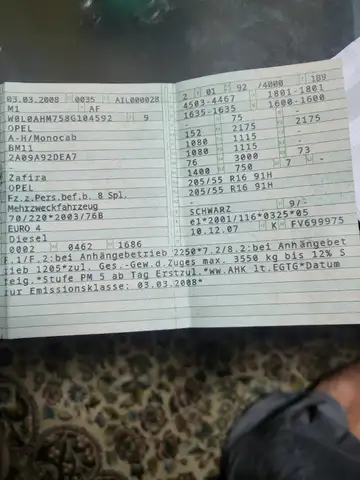 03.03.2008 0035 AIL000028
M1 AF
W0L0AHM758G104592 9
OPEL
A-H/Monocab
BM11
2A09A92DEA7
-
Zafira
OPEL
Fz.z.Pers.bef.b. 8 Spl.
Mehrzweckfahrzeug
70/220*2003/76B
EURO 4
Diesel
0002 0462 1686
2 01 92 /4000 189
4503-4467 1801-1801
1635-1635 1600-1600
- 75 -
152 2175 2175
1080 1115 -
1080 1115 73
76 3000 -
1400 750 7 -
205/55 R16 91H
205/55 R16 91H
-
SCHWARZ 9/-
e1*2001/116*0325*05
10.12.07 K FV699975
F.1/F.2:bei Anhängebetrieb 2250*7.2/8.2:bei Anhängebet
rieb 1205*zul. Ges.-Gew.d.Zuges max. 3550 kg bis 12% S
teig.*Stufe PM 5 ab Tag Erstzul.*ww.AHK lt.EGTG*Datum
zur Emissionsklasse: 03.03.2008*